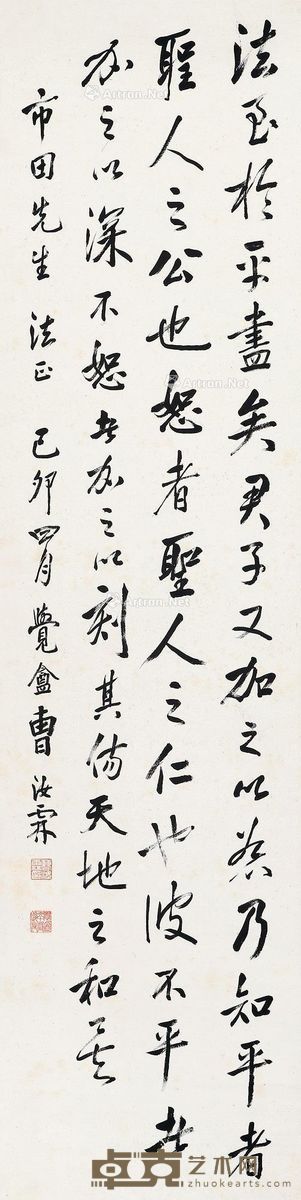 法至於平盡矣君子又加之以恕乃知平者
聖人之公也恕者聖人之仁也彼不平者
加之以深不恕者加之以刻其傷天地之和多矣
市田先生 法正 己卯四月 覺盦曹汝霖
Artron.Net
卓克艺术网
www.zhuokearts.com